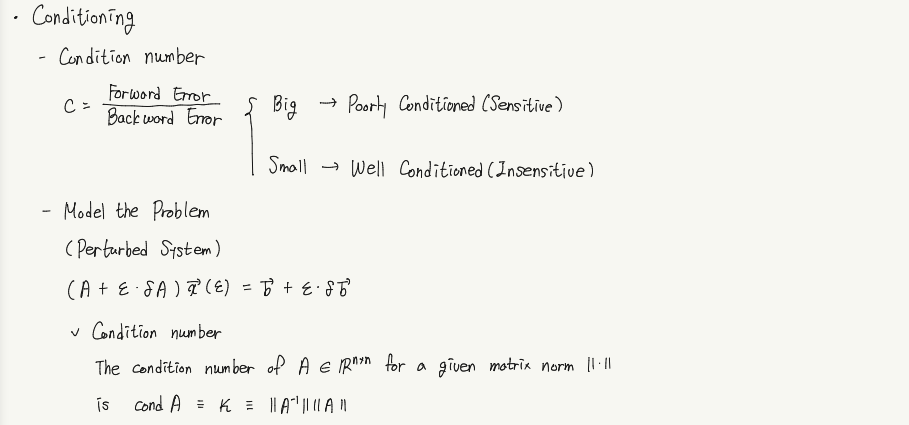 · Conditioning
- Condition number
C = Forward Error / Backward Error { Big → Poorly Conditioned (Sensitive)
Small → Well Conditioned (Insensitive)
- Model the Problem
(Perturbed System)
(A + ε · δA) x⃗(ε) = b⃗ + ε · δb⃗
∨ Condition number
The condition number of A ∈ ℝⁿˣⁿ for a given matrix norm ||·||
is cond A ≡ κ ≡ ||A⁻¹|| ||A||